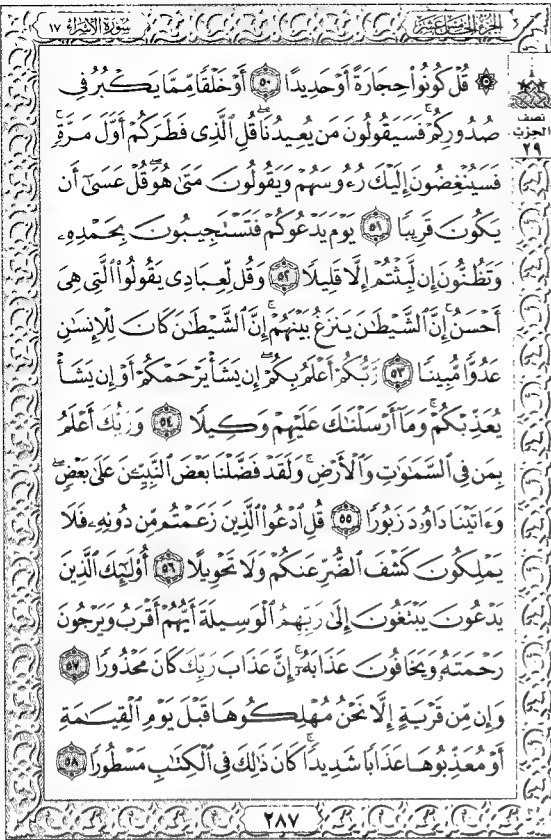 الجزء الخامس عشر
سورة الإسراء ١٧
نصف
الحزب
٢٩
۞ قُلْ كُونُوا۟ حِجَارَةً أَوْ حَدِيدًا ٥٠ أَوْ خَلْقًا مِّمَّا يَكْبُرُ فِى
صُدُورِكُمْ ۚ فَسَيَقُولُونَ مَن يُعِيدُنَا ۖ قُلِ ٱلَّذِى فَطَرَكُمْ أَوَّلَ مَرَّةٍ ۚ
فَسَيُنْغِضُونَ إِلَيْكَ رُءُوسَهُمْ وَيَقُولُونَ مَتَىٰ هُوَ ۖ قُلْ عَسَىٰٓ أَن
يَكُونَ قَرِيبًا ٥١ يَوْمَ يَدْعُوكُمْ فَتَسْتَجِيبُونَ بِحَمْدِهِۦ
وَتَظُنُّونَ إِن لَّبِثْتُمْ إِلَّا قَلِيلًا ٥٢ وَقُل لِّعِبَادِى يَقُولُوا۟ ٱلَّتِى هِىَ
أَحْسَنُ ۚ إِنَّ ٱلشَّيْطَٰنَ يَنزَغُ بَيْنَهُمْ ۚ إِنَّ ٱلشَّيْطَٰنَ كَانَ لِلْإِنسَٰنِ
عَدُوًّا مُّبِينًا ٥٣ رَّبُّكُمْ أَعْلَمُ بِكُمْ ۖ إِن يَشَأْ يَرْحَمْكُمْ أَوْ إِن يَشَأْ
يُعَذِّبْكُمْ ۚ وَمَآ أَرْسَلْنَٰكَ عَلَيْهِمْ وَكِيلًا ٥٤ وَرَبُّكَ أَعْلَمُ
بِمَن فِى ٱلسَّمَٰوَٰتِ وَٱلْأَرْضِ ۗ وَلَقَدْ فَضَّلْنَا بَعْضَ ٱلنَّبِيِّۦنَ عَلَىٰ بَعْضٍ ۖ
وَءَاتَيْنَا دَاوُۥدَ زَبُورًا ٥٥ قُلِ ٱدْعُوا۟ ٱلَّذِينَ زَعَمْتُم مِّن دُونِهِۦ فَلَا
يَمْلِكُونَ كَشْفَ ٱلضُّرِّ عَنكُمْ وَلَا تَحْوِيلًا ٥٦ أُو۟لَٰٓئِكَ ٱلَّذِينَ
يَدْعُونَ يَبْتَغُونَ إِلَىٰ رَبِّهِمُ ٱلْوَسِيلَةَ أَيُّهُمْ أَقْرَبُ وَيَرْجُونَ
رَحْمَتَهُۥ وَيَخَافُونَ عَذَابَهُۥٓ ۚ إِنَّ عَذَابَ رَبِّكَ كَانَ مَحْذُورًا ٥٧
وَإِن مِّن قَرْيَةٍ إِلَّا نَحْنُ مُهْلِكُوهَا قَبْلَ يَوْمِ ٱلْقِيَٰمَةِ
أَوْ مُعَذِّبُوهَا عَذَابًا شَدِيدًا ۚ كَانَ ذَٰلِكَ فِى ٱلْكِتَٰبِ مَسْطُورًا ٥٨
٢٨٧